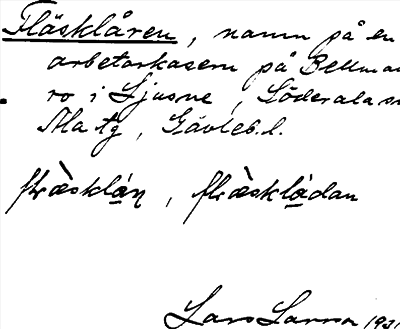 Fläsklåren, namn på en
arbetarkasern på Bellma
ro i Ljusne, Söderala s
Ala tg, Gävleb.l.
flæsklån, flæsklådan
Lars Larsson 193